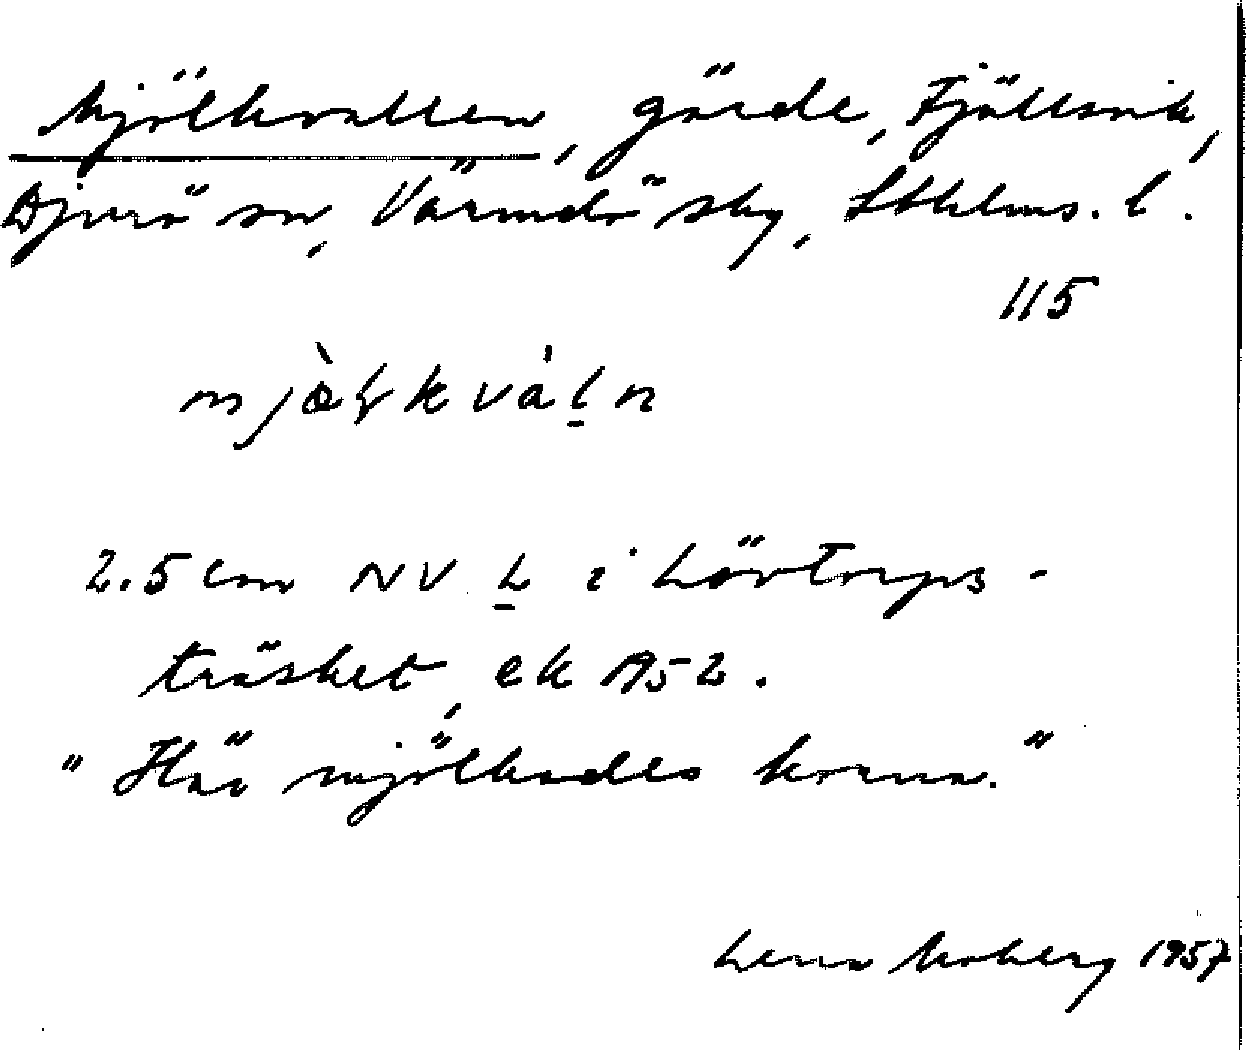 Mjölkvallen, gärde, Fjällsvik,
Djurö sn, Värmdö skg, Sthlms. l.
115
mjὰlkvàln
2.5 cm NV L i Lövtorps-
träsket, ek 1952.
"Här mjölkades korna."
Lena Moberg 1957